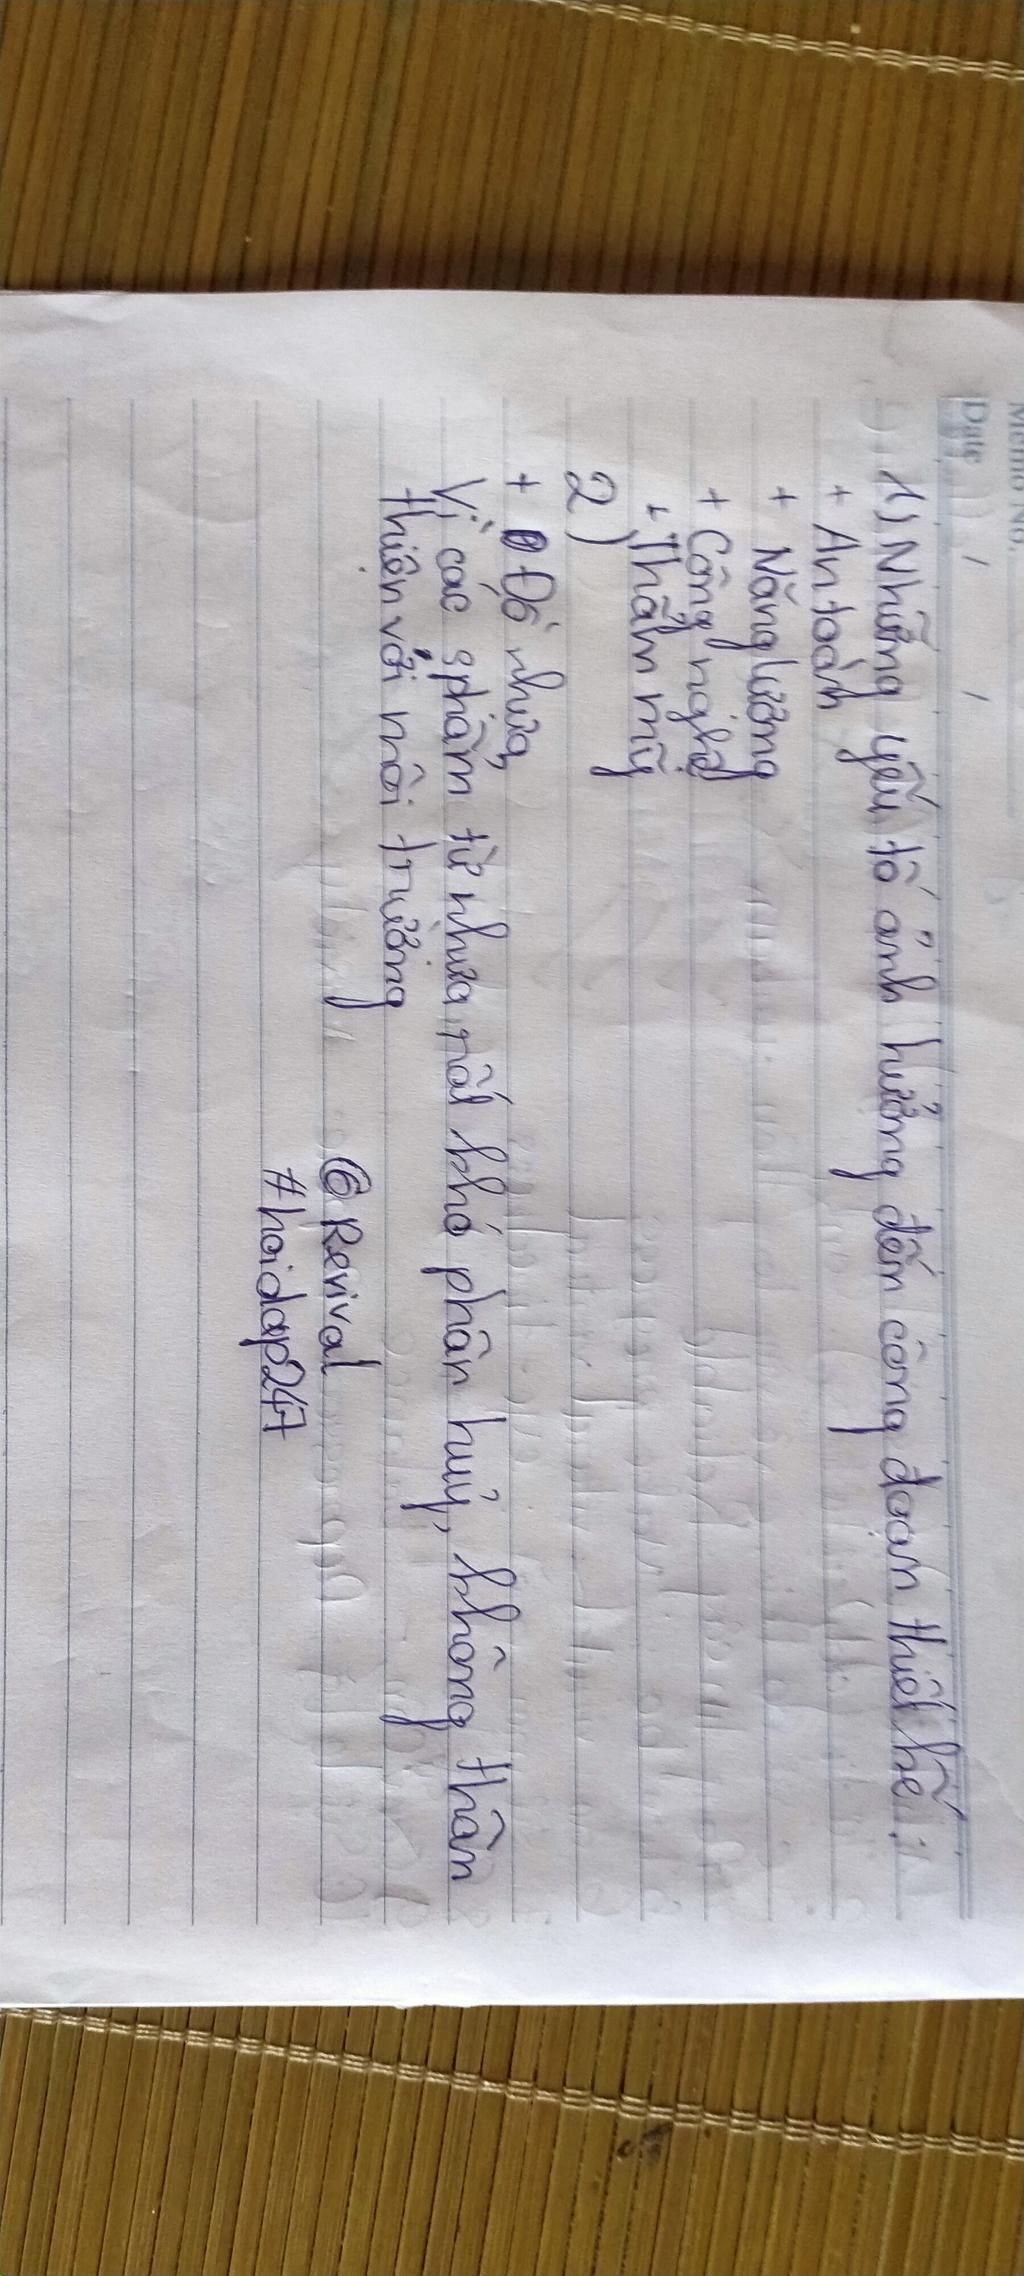 Memo No.
Date / /
1) Những yếu tố ảnh hưởng đến công đoạn thiết kế :
+ An toàn
+ Năng lượng
+ Công nghệ
+ Thẩm mỹ
2)
+ Đồ nhựa
Vì các sphẩm từ nhựa rất khó phân huỷ, không thân
thiện với môi trường
@Revival
#hoidap247